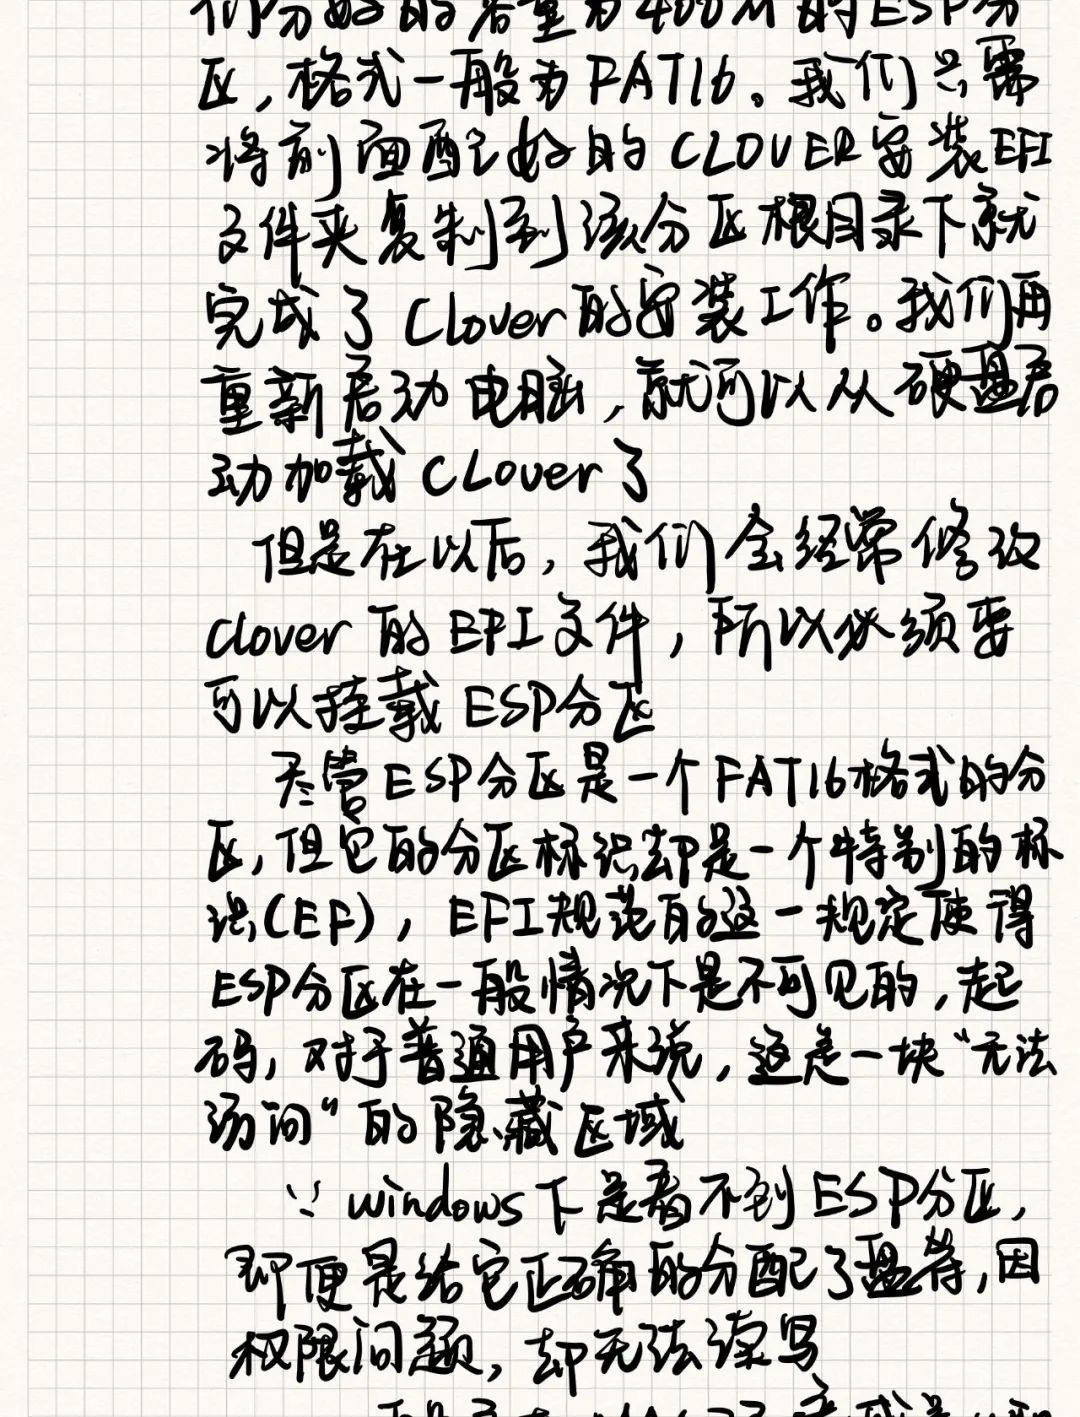 们分好的容量为400M的ESP分
区，格式一般为FAT16。我们只需
将前面配好的CLOVER安装EFI
文件夹复制到该分区根目录下就
完成了Clover的安装工作。我们再
重新启动电脑，就可以从硬盘启
动加载CLover了
但是在以后，我们会经常修改
Clover的EFI文件，所以必须要
可以挂载ESP分区
尽管ESP分区是一个FAT16格式的分
区，但它的分区标识却是一个特别的标
识(EF)，EFI规范的这一规定使得
ESP分区在一般情况下是不可见的，起
码，对于普通用户来说，这是一块“无法
访问”的隐藏区域
∵windows下是看不到ESP分区，
即便是给它正确的分配了盘符，因
权限问题，却无法读写